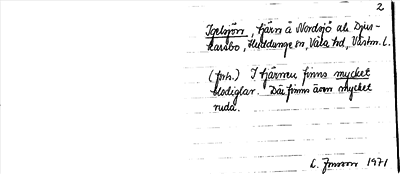 2
Igelsjön, tjärn å Nordsjö ak Djur-
karsbo, Huddunge sn, Våla hd, Västm. l.
(fnh.) I tjärnen finns mycket
blodiglar. Där finns även mycket
ruda.
L. Jonson 1971